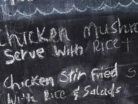 Chicken Mushr
Serve with Rice +
Chicken Stir Fried S
With Rice & Salads